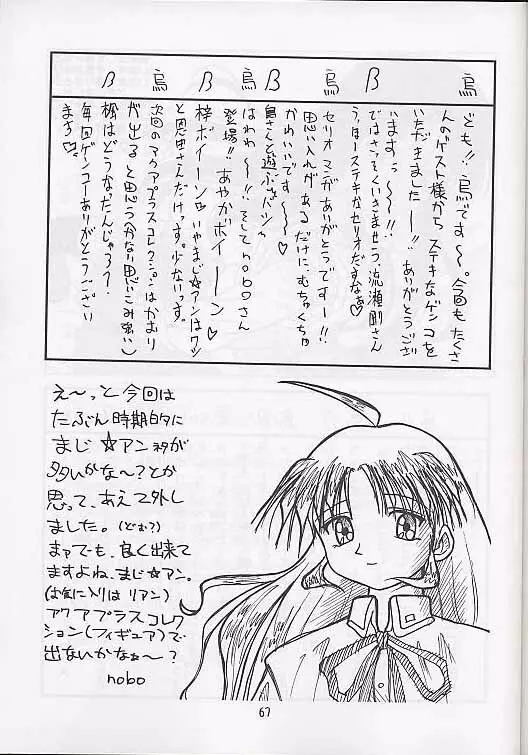 烏 β 烏 β 烏 β 烏 β
ども!!烏です〜〜。今回もたくさ
んのゲスト様からステキなゲンコを
いただきましたー!!ありがとうござ
いますぅ〜!!
ではさっそくいきませう。流瀬剛さん
うほーステキなセリオだすなぁ♡
セリオマンガありがとうですー!!
思い入れがあるだけにむちゃくちゃ
かわいいです〜〜♡
烏さんと遊ぶ
はわわ〜〜!そしてnoboさん
登場!!あやかボイーン♡
梓ボイーン♡いやまじ☆アンはワシ
と恩田さんだけっす。少ないっす。
次回のアクアプラスコレクションはかおり
が出ると思う(分ない思いこみ強い)
楓はどうなったんじゃろ?
毎回ゲンコーありがとうござい
まする♡
え〜っと今回は
たぶん時期的に
まじ☆アンネタが
多いかな〜?とか
思って、あえて外し
ました。(どむ?)
まァでも、良く出来て
ますよね、まじ☆アン。
(お気に入りはリアン)
アクアプラスコレク
ション(フィギュア)で
出ないかなぁ〜?
nobo
67